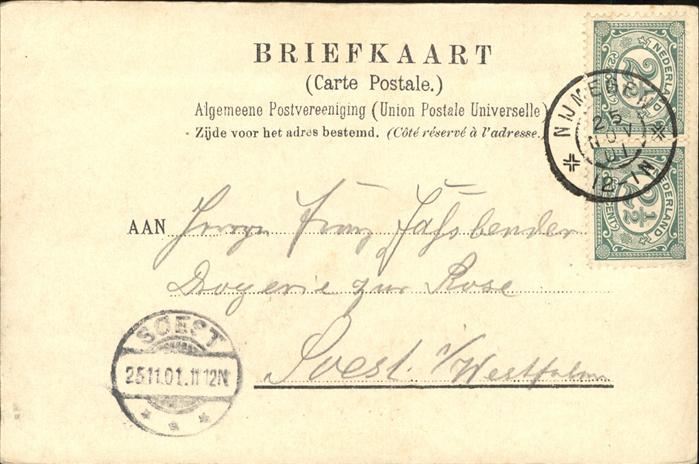 BRIEFKAART
(Carte Postale.)
Algemeene Postvereeniging (Union Postale Universelle)
Zijde voor het adres bestemd. (Côté réservé à l'adresse.)
NEDERLAND
2½
NIJMEGEN
25
NOV
01
12-1N
2½
CENT
NEDERLAND
AAN Herrn Franz Fassbender
Drogerie zur Rose
Soest i/Westfalen
SOEST
25.11.01.11-12N